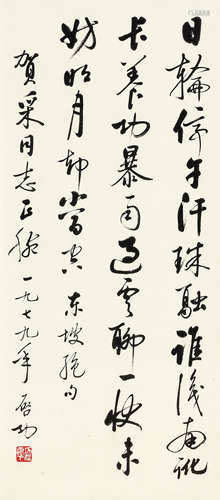 日輪停午汗珠融誰識南訛
長養功暴雨過雲聊一快未
妨明月却當空 東坡絕句
賀采同志正腕 一九七九年 啓功